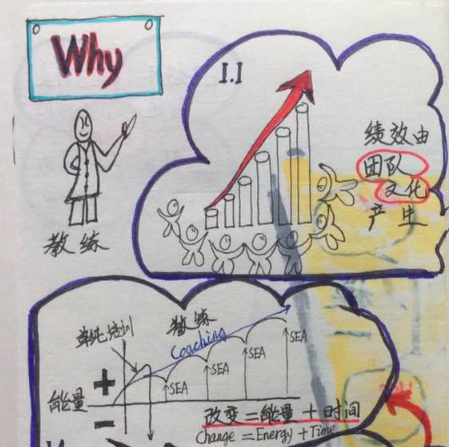 Why
教练
1.1
绩效由
团队
文化
产生
单纯培训
教练
Coaching
能量
+
−
SEA
SEA
SEA
SEA
改变＝能量＋时间
Change = Energy + Time